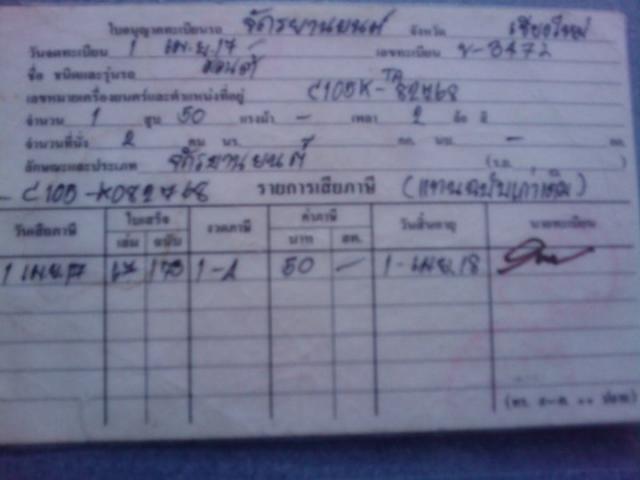 ใบอนุญาตทะเบียนรถ จักรยานยนต์ จังหวัด เชียงใหม่
วันจดทะเบียน 1 เม.ย.17 เลขทะเบียน 3472
ชื่อ ชนิดและรุ่นรถ ฮอนด้
เลขหมายเครื่องยนต์และตำแหน่งที่อยู่ C105K-
จำนวน 1 สูบ 50 แรงม้า - เพลา 2 ล้อ
จำนวนที่นั่ง 2 คน -
ลักษณะและประเภท จักรยานยนต์
C105-K082768 รายการเสียภาษี (แทนฉบับเก่าเต็ม)
วันเสียภาษี ใบเสร็จ งวดภาษี ค่าภาษี วันสิ้นอายุ นายทะเบียน
เล่ม ฉบับ บาท สต.
1 เม.ย.17 173 1-4 50 - 1-เม.ย.18